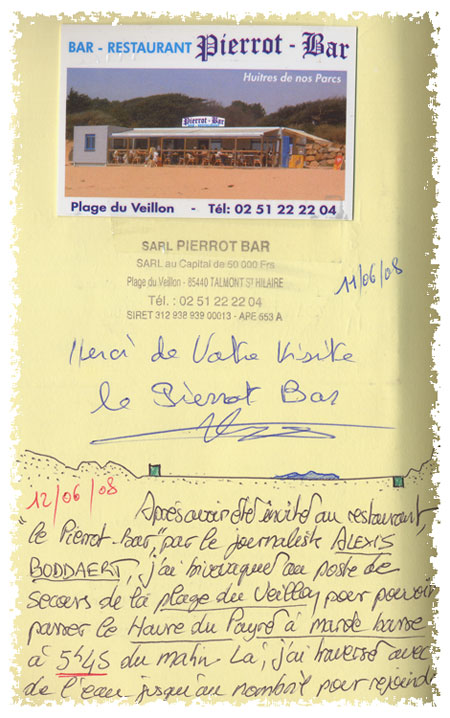 BAR - RESTAURANT Pierrot - Bar
Huîtres de nos Parcs
Pierrot-Bar
Plage du Veillon - Tél: 02 51 22 22 04
SARL PIERROT BAR
SARL au Capital de 50 000 Frs
Plage du Veillon - 85440 TALMONT ST HILAIRE
Tél. : 02 51 22 22 04
SIRET 312 938 939 00013 - APE 553 A
11/06/08
Merci de Votre Visite
le Pierrot Bar
12/06/08
Après avoir été invité au restaurant,
"le Pierrot-Bar", par le journaliste ALEXIS
BODDAERT, j'ai bivouaqué au poste de
secours de la plage du Veillon pour pouvoir
passer le Havre du Payré à marée basse
à 5h45 du matin. Là, j'ai traversé avec
de l'eau jusqu'au nombril pour rejoindre